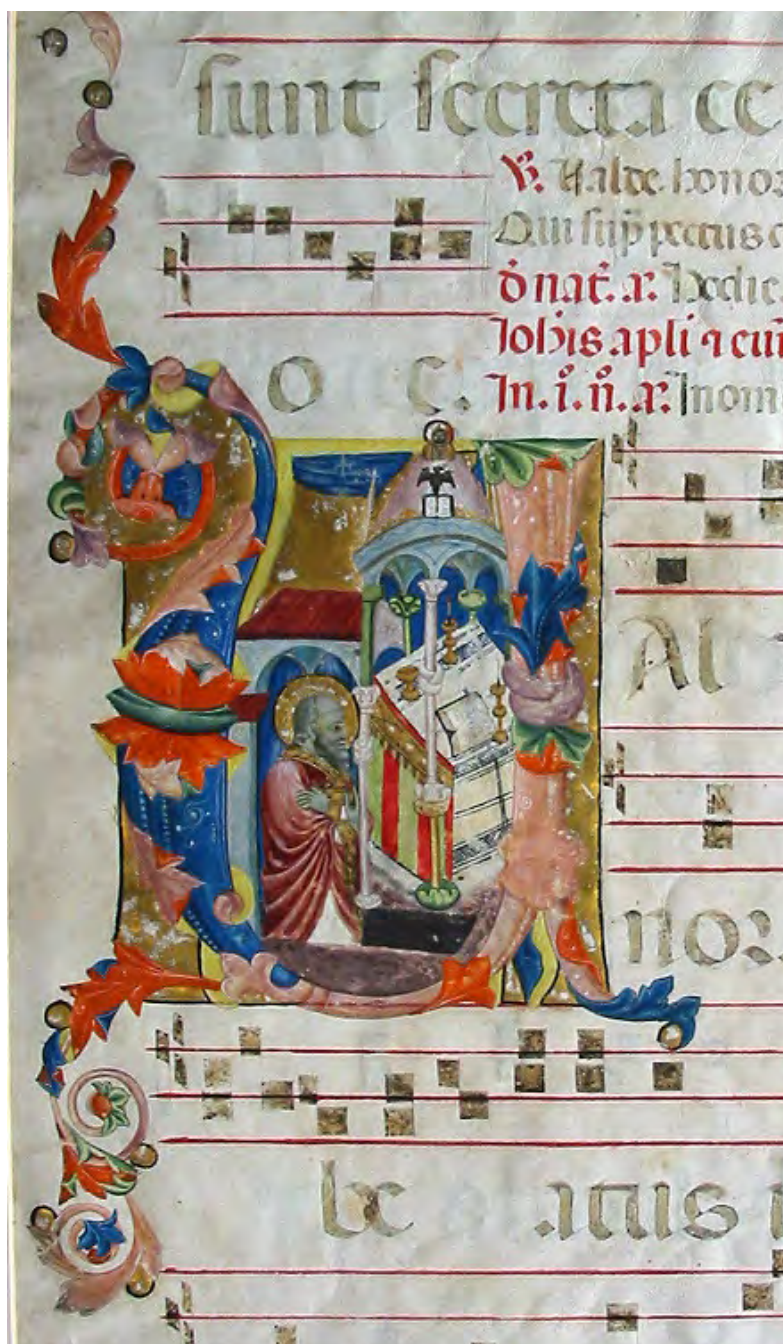 sunt secreta ce
℟. Valde honor
Qui sup̄ pectus c
d̄ nat̄. a. Hodie
Ioh̄is apl̄i ⁊ eu
In. i. n̄. a. In om
o c.
V Al
nor
be atus